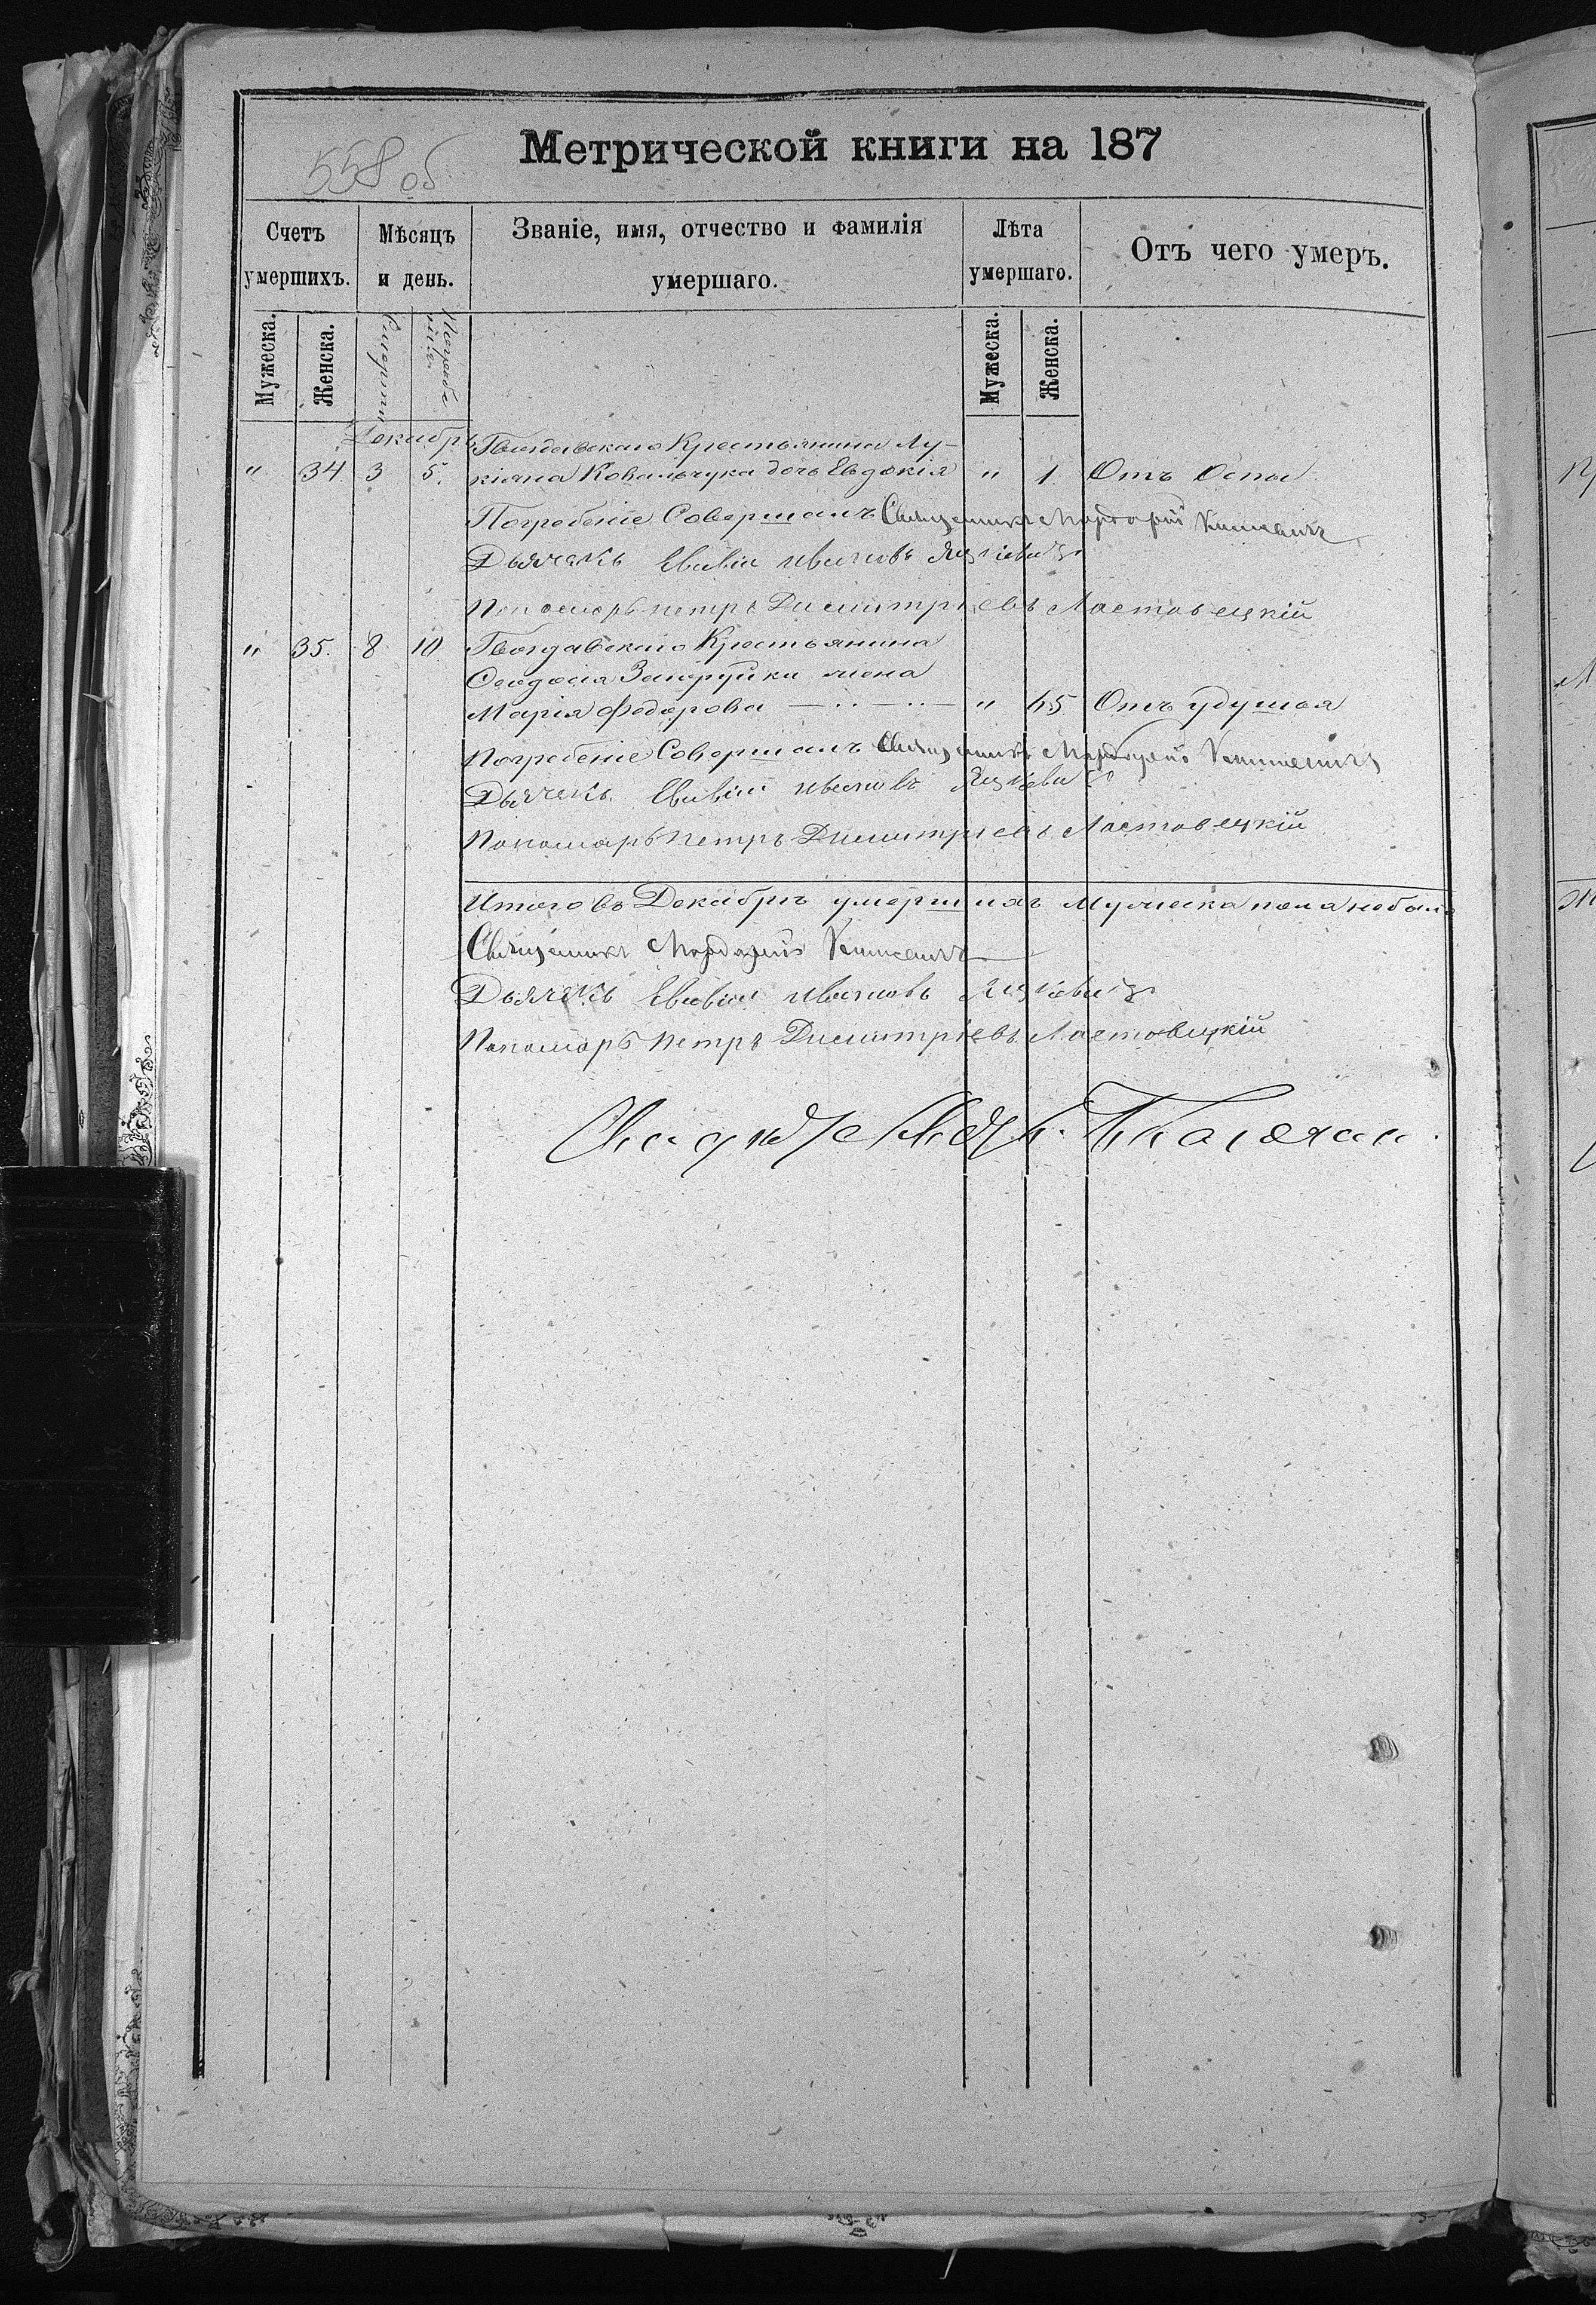 558 об
Метрической книги на 187
Счетъ умершихъ. Мѣсяцъ и день. Званіе, имя, отчество и фамилія умершаго. Лѣта умершаго. Отъ чего умеръ.
Мужеска. Женска. Мужеска. Женска.
Декабрь
Крестьянина Лу-
" 34 3 5. кіяна Ковальчука дочь Евдокія " 1 Отъ Оспы
Погребеніе Совершалъ Священникъ Мардарій
Дьячекъ Ивановъ
Пономарь Петръ Димитріевъ Ластовецкій
" 35. 8 10 Крестьянина
Ѳеодосія жена
Марія Федорова " 45 Отъ удушья
Погребеніе Совершалъ Священникъ Мардарій
Дьячекъ Ивановъ
Пономарь Петръ Димитріевъ Ластовецкій
Итого въ Декабрѣ умершихъ Мужеска пола небыло
Священникъ Мардарій
Дьячекъ Ивановъ
Пономарь Петръ Димитріевъ Ластовецкій